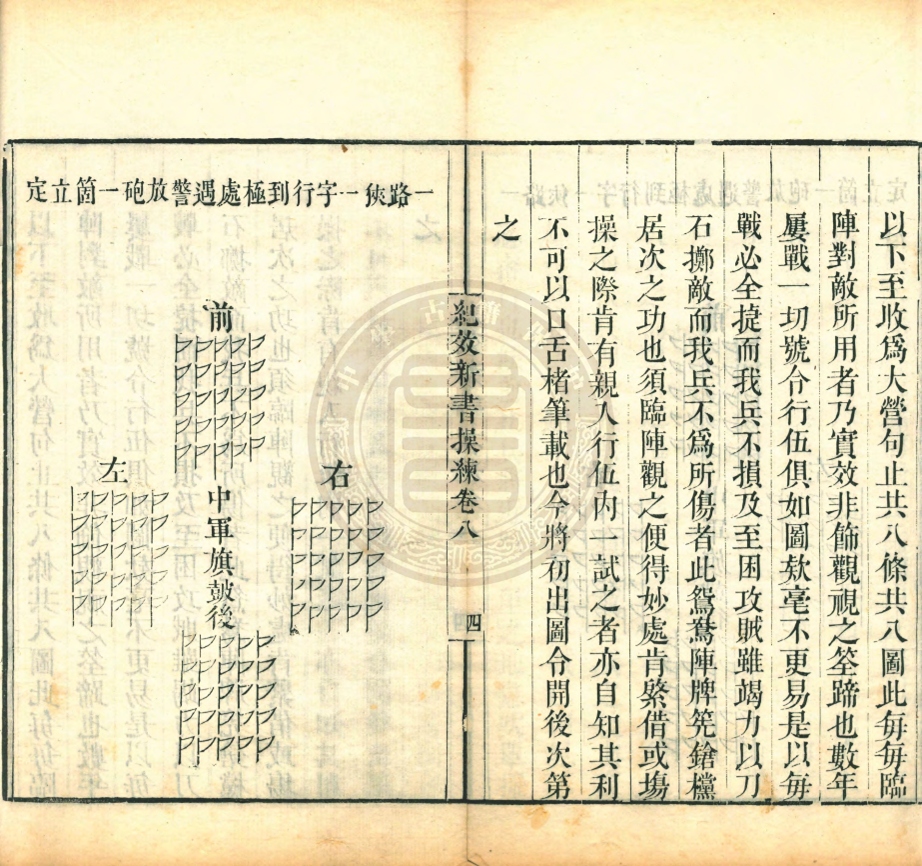 以下至收爲大營句止共八條共八圖此毎毎臨
陣對敵所用者乃實效非餙觀視之筌蹄也數年
屢戰一切號令行伍俱如圖欵毫不更易是以毎
戰必全㨗而我兵不損及至困攻賊雖竭力以刀
石擲敵而我兵不爲所傷者此鴛鴦陣牌筅鎗欓
居次之功也須臨陣觀之便得妙處肯綮借或塲
操之際肯有親入行伍內一試之者亦自知其利
不可以口舌楮筆載也今將初出圖令開後次第
之
紀效新書操練卷八
四
一路狹一字行到極處遇警放砲一箇立定
前
右
左
中軍旗皷後